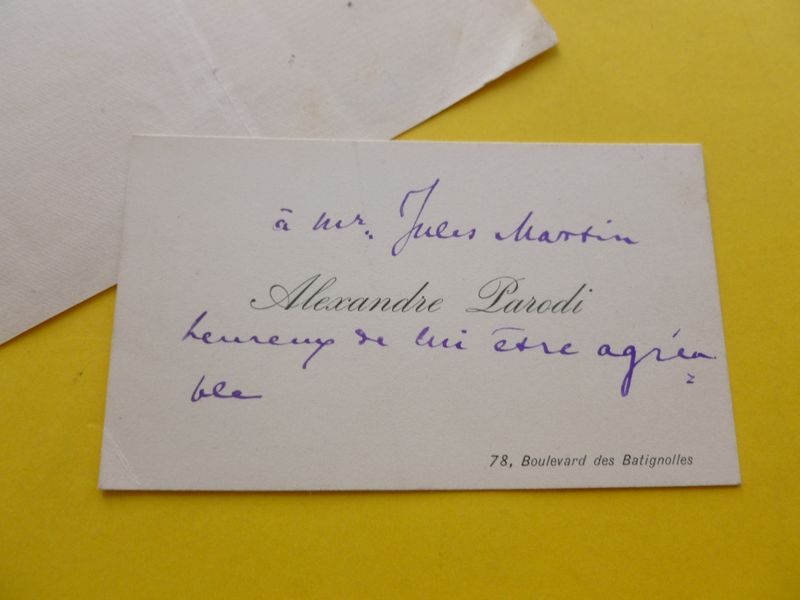 à Mr. Jules Martin
Alexandre Parodi
heureux de lui être agréa
ble
78, Boulevard des Batignolles